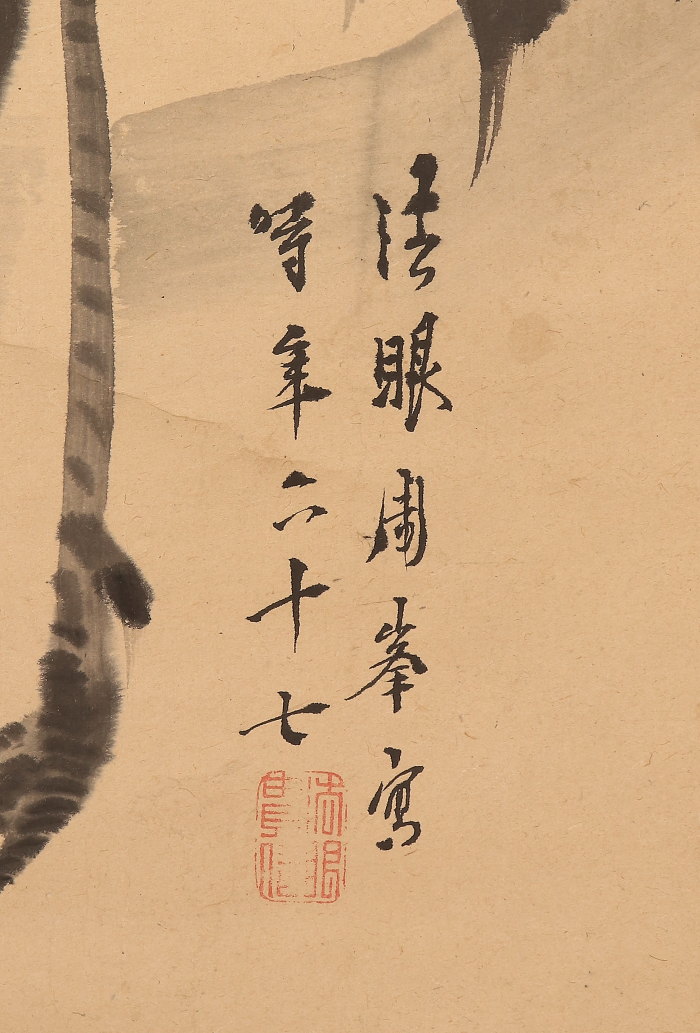 法眼周峯寫
時年六十七
法眼